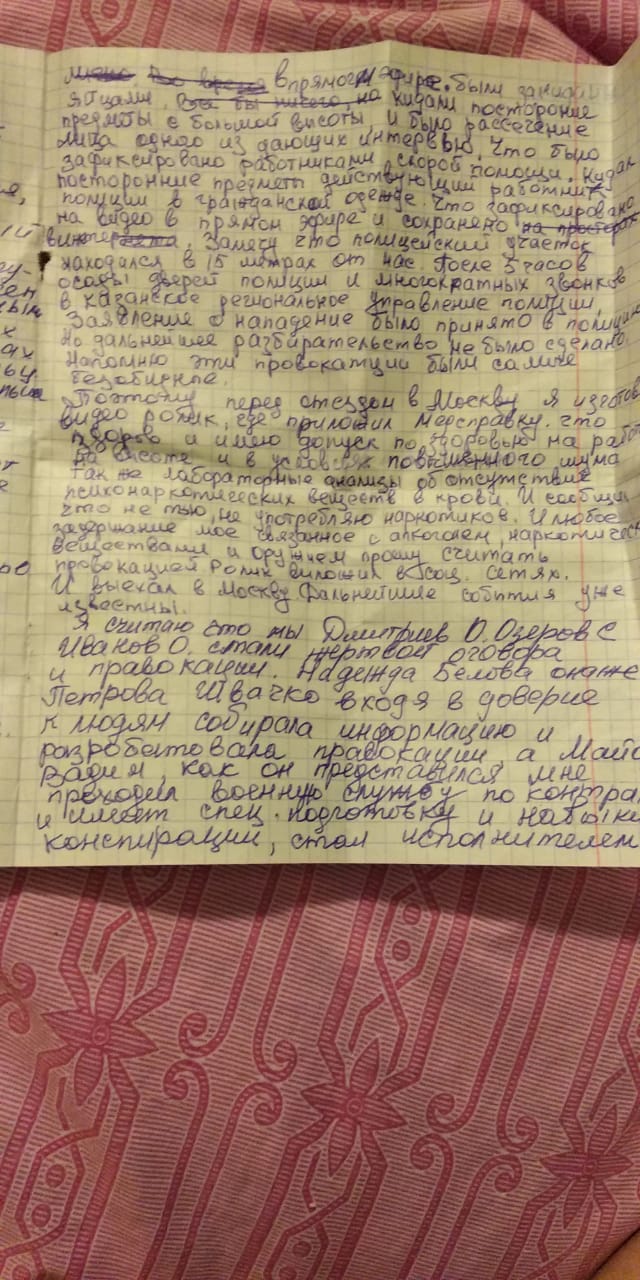 в прямом эфире. были закидан
яйцами, все бы ничего, но кидали посторонние
предметы с большой высоты, и было рассечение
лица одного из дающих интервью, что было
зафиксировано работниками скорой помощи. Кидал
посторонние предметы действующии работник
полиции в гражданской одежде. что зафиксировано
на видео в прямом эфире и сохранено на просторах
Замечу что полицейский участок
находался в 15 метрах от нас. После 5 часов
осады дверей полиции и многократных звонков
в казанское региональное управление полиции,
Заявление о нападение было принято в полицию
Но дальнейшее разбирательство не было сделано.
Напомню эти провокатции были самые
безобидные.
Поэтому перед отездом в Москву я изготов
видео ролик, где приложил медсправку. что
здоров и имею допуск по здоровью на работ
на высоте и в условиях повышенного шума
так же лабораторные анализы об отсутствие
психонаркотических веществ в крови. И сообщил
что не пью, не употребляю наркотиков. И любое
задержание мое связанное с алкоголем, наркотическ
веществами и оружием прошу считать
провокацией Ролик выложил в соц. сетях.
И выехал в Москву. Дальнейшие события уже
известны.
Я считаю что мы Дмитриев О. Озеров С
Иванов О. стали жертвой оговора
и правокации. Надежда Белова онаже
Петрова Швачко входя в доверие
к людям собирала информацию и
розробатовала правокации а Майо
Вадим, как он представился мне
проходил военную службу по контра
и имеет спец. подготовку и навыки
конспирации, стал исполнителем